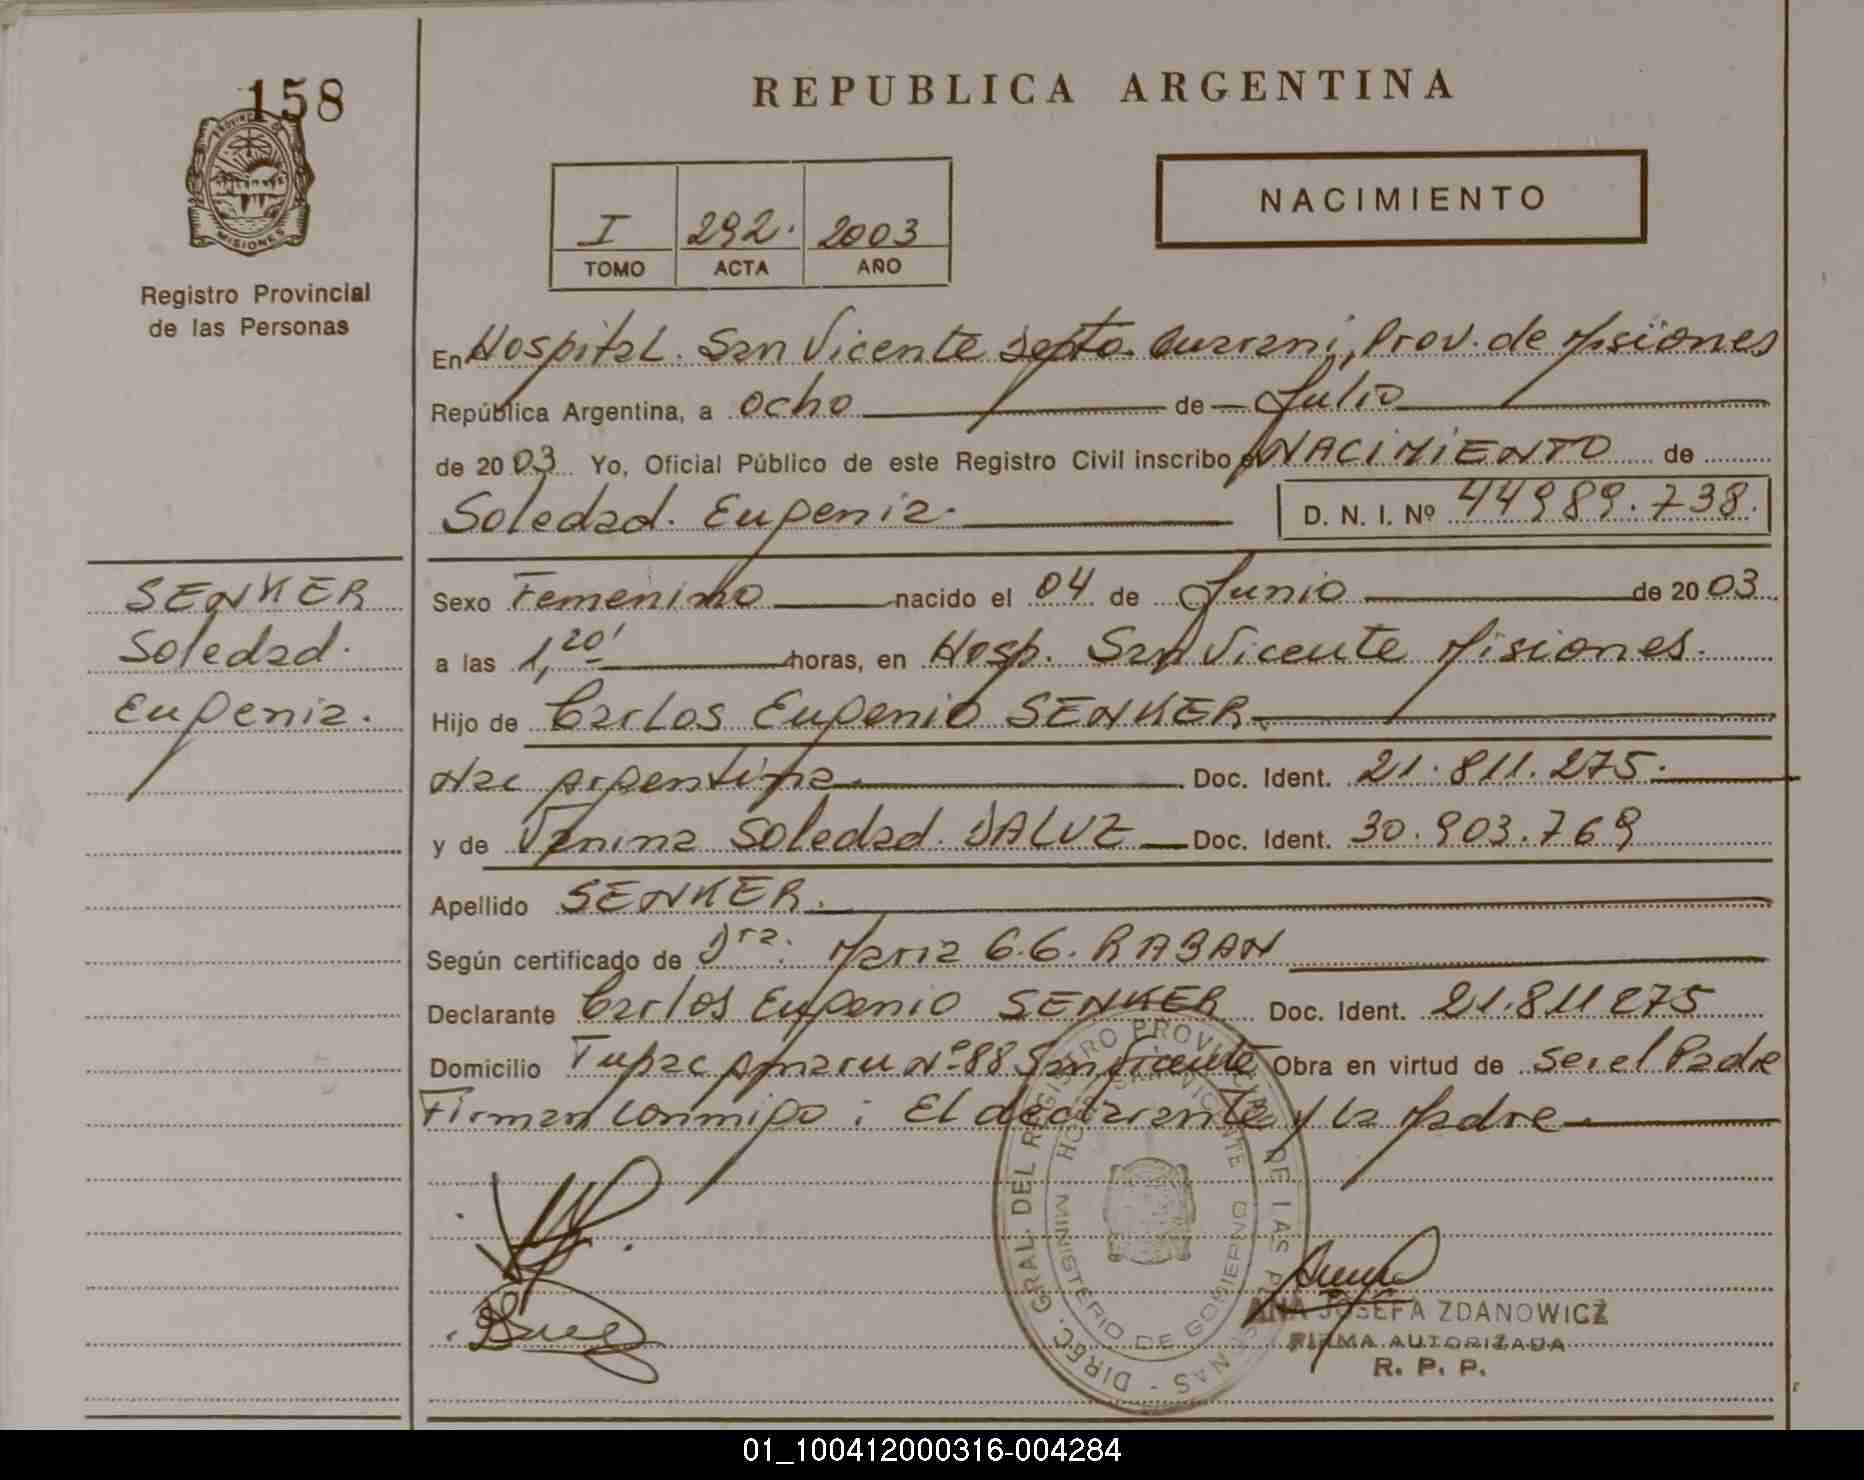 158
PROVINCIA DE
MISIONES
Registro Provincial
de las Personas
REPUBLICA ARGENTINA
I 292. 2003
TOMO ACTA AÑO
NACIMIENTO
En Hospital. San Vicente Depto. Guarani, Prov. de Misiones
República Argentina, a ocho de Julio
de 2003 Yo, Oficial Público de este Registro Civil inscribo el NACIMIENTO de
Soledad. Eugenia. D. N. I. Nº 44989.738.
SENKER
Soledad.
Eugenia.
Sexo Femenimo nacido el 04 de Junio de 2003
a las 1,20' horas, en Hosp. San Vicente Misiones.
Hijo de Carlos Eugenio SENKER
Nac Argentina. Doc. Ident. 21.811.275.
y de Vanina Soledad. DALUZ Doc. Ident. 30.903.769
Apellido SENKER.
Según certificado de Dra. Maria G.G. RABAN
Declarante Carlos Eugenio SENKER Doc. Ident. 21.811275
Domicilio Tupac Amaru Nº 88 San Vicente Obra en virtud de ser el Padre
Firman conmigo: El declarante y la Madre
DIREC. GRAL. DEL REGISTRO PROVINCIAL DE LAS PERSONAS
MINISTERIO DE GOBIERNO
SAN VICENTE
ANA JOSEFA ZDANOWICZ
FIRMA AUTORIZADA
R. P. P.
01_100412000316-004284